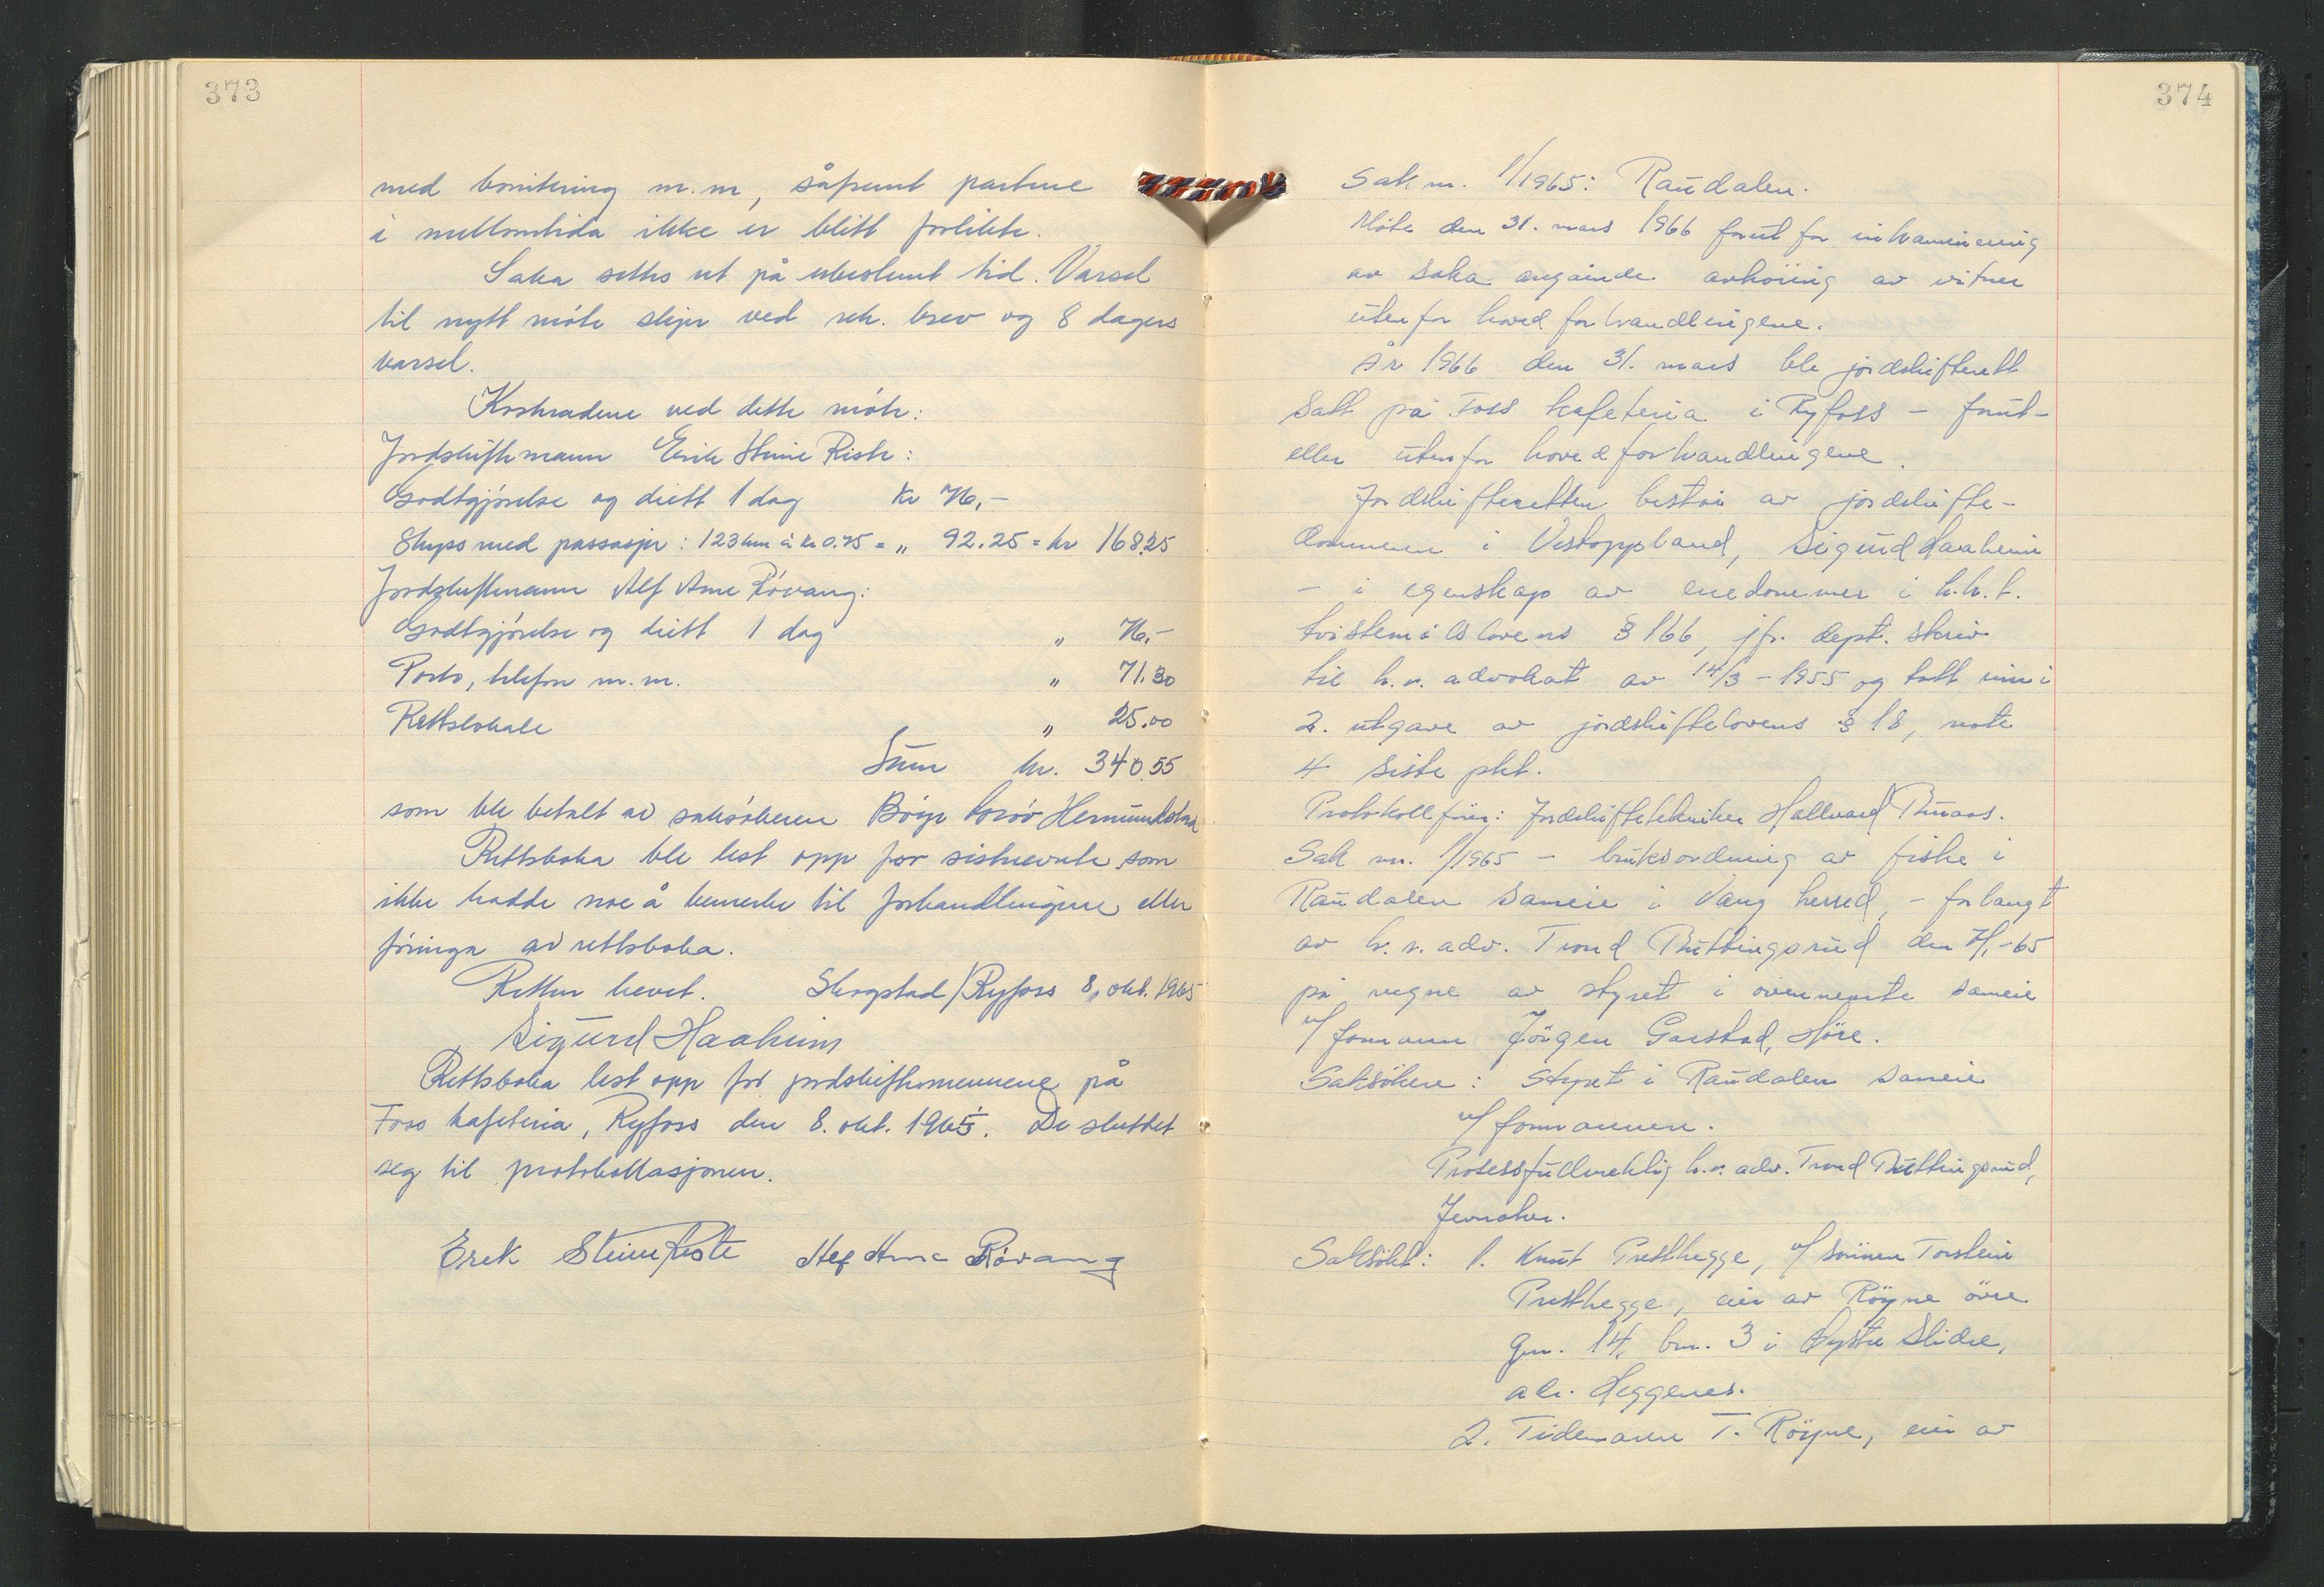 373
med bonitering m.m, såfremt partene
i mellomtida ikke er blitt forlikte.
Saka settes ut på ubestemt tid. Varsel
til nytt möte skjer ved rek. brev og 8 dagers
varsel.
Kostnadene ved dette möte:
Jordskiftemann Erik Steine Riste:
Godtgjörelse og diett 1 dag kr 76,-
Skyss med passasjer: 123 km à kr 0.75 = „ 92.25 = kr 168.25
Jordskiftemann Alf Arne Rövang:
Godtgjörelse og diett 1 dag „ 76,-
Porto, telefon m.m. „ 71.30
Rettslokale „ 25.00
Sum kr. 340.55
som ble betalt av saksökeren Börge Hermundstad
Rettsboka ble lest opp for sistnevnte som
ikke hadde noe å bemerke til forhandlingene eller
föringa av rettsboka.
Retten hevet. Skogstad/Ryfoss 8. okt. 1965
Sigurd Haaheim
Rettsboka lest opp for jordskiftemennene på
Foss kafeteria, Ryfoss den 8. okt. 1965. De sluttet
seg til protokollasjonen.
Erik Steine Riste Alf Arne Rövang
374
Sak nr. 1/1965: Raudalen.
Möte den 31. mars 1966 forut for
av saka angående avhöring av vitner
utenfor hovedforhandlingene.
År 1966 den 31. mars ble jordskifterett
satt på Foss kafeteria i Ryfoss - forut-
eller utenfor hovedforhandlingene.
Jordskifteretten består av jordskifte-
dommeren i Vestoppland, Sigurd Haaheim
- i egenskap av enedommer i h.h.t.
tvistemålslovens § 166, jfr. dept. skriv
til h.r. advokat av 14/3 - 1955 og tatt inn i
2. utgave av jordskiftelovens § 18, note
4 siste pkt.
Protokollförer: Jordskiftetekniker Hallvard
Sak nr. 1/1965 - bruksordning av fiske i
Raudalen sameie i Vang herred, - forlangt
av h.r. adv. Trond Buttingsrud den -65
på vegne av styret i ovennevnte sameie
v/ formann Jörgen Garstad, Höre.
Saksökere: Styret i Raudalen sameie
v/ formannen.
Prosessfullmektig h.r. adv. Trond Buttingsrud,
Jevnaker.
Saksökt: 1. Knut Presthegge, v/ sönnen Torstein
Presthegge, eier av Röyne övre
gnr. 14, bnr. 3 i Öystre Slidre,
adr. Heggenes.
2. Tidemann T. Röyne, eier av